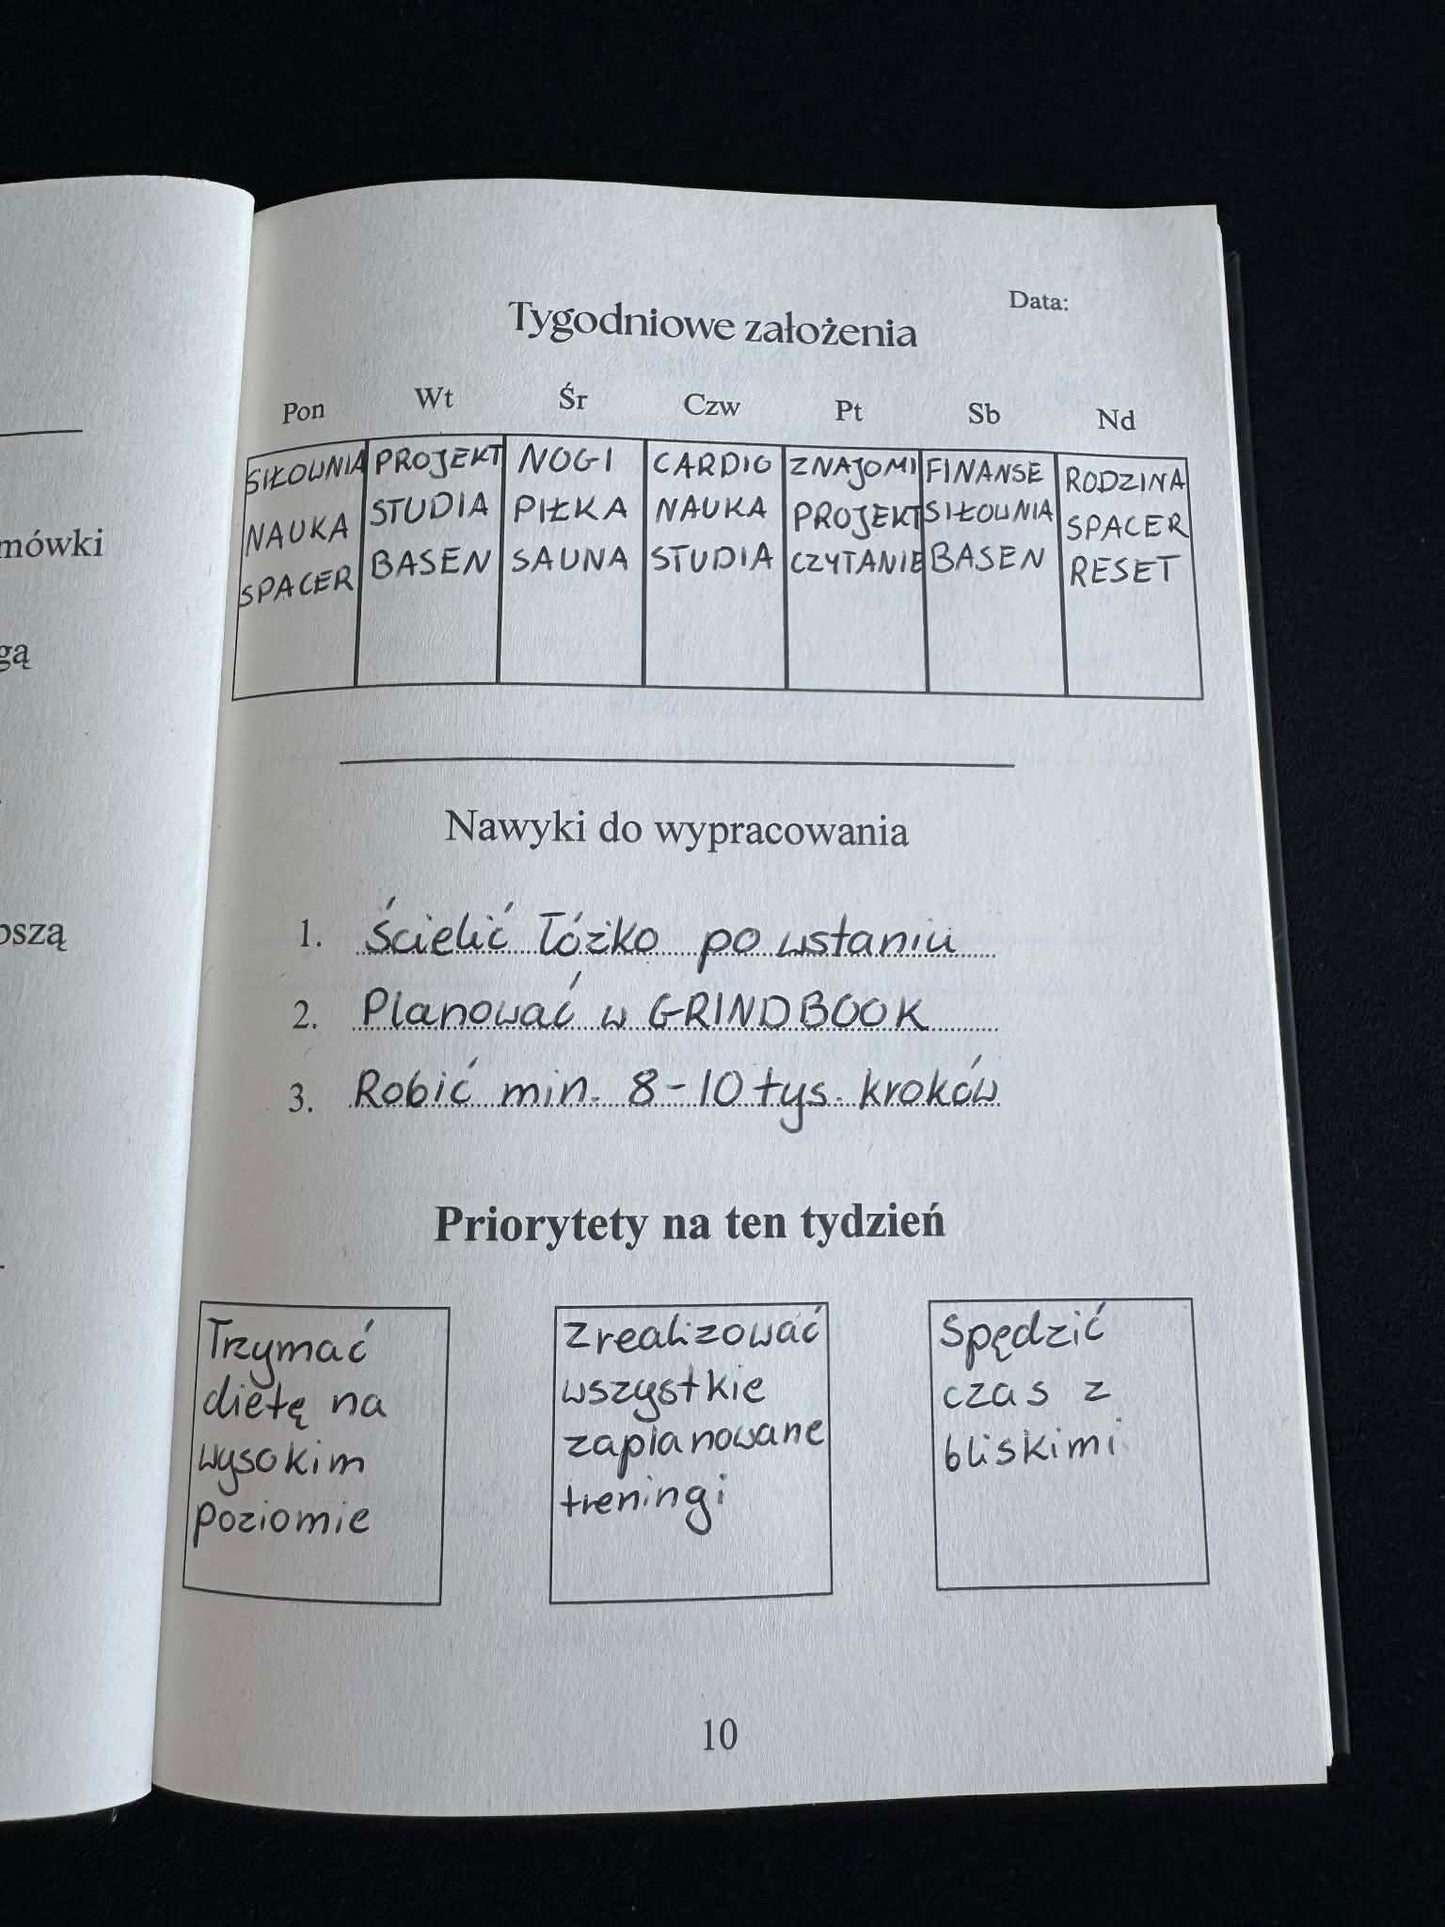 mówki
gą
oszą
Data:
Tygodniowe założenia
Pon Wt Śr Czw Pt Sb Nd
SIŁOWNIA PROJEKT NOGI CARDIO ZNAJOMI FINANSE RODZINA
NAUKA STUDIA PIŁKA NAUKA PROJEKT SIŁOWNIA SPACER
SPACER BASEN SAUNA STUDIA CZYTANIE BASEN RESET
Nawyki do wypracowania
1. Ścielić łóżko po wstaniu
2. Planować w GRINDBOOK
3. Robić min. 8-10 tys. kroków
Priorytety na ten tydzień
Trzymać
dietę na
wysokim
poziomie
Zrealizować
wszystkie
zaplanowane
treningi
Spędzić
czas z
bliskimi
10